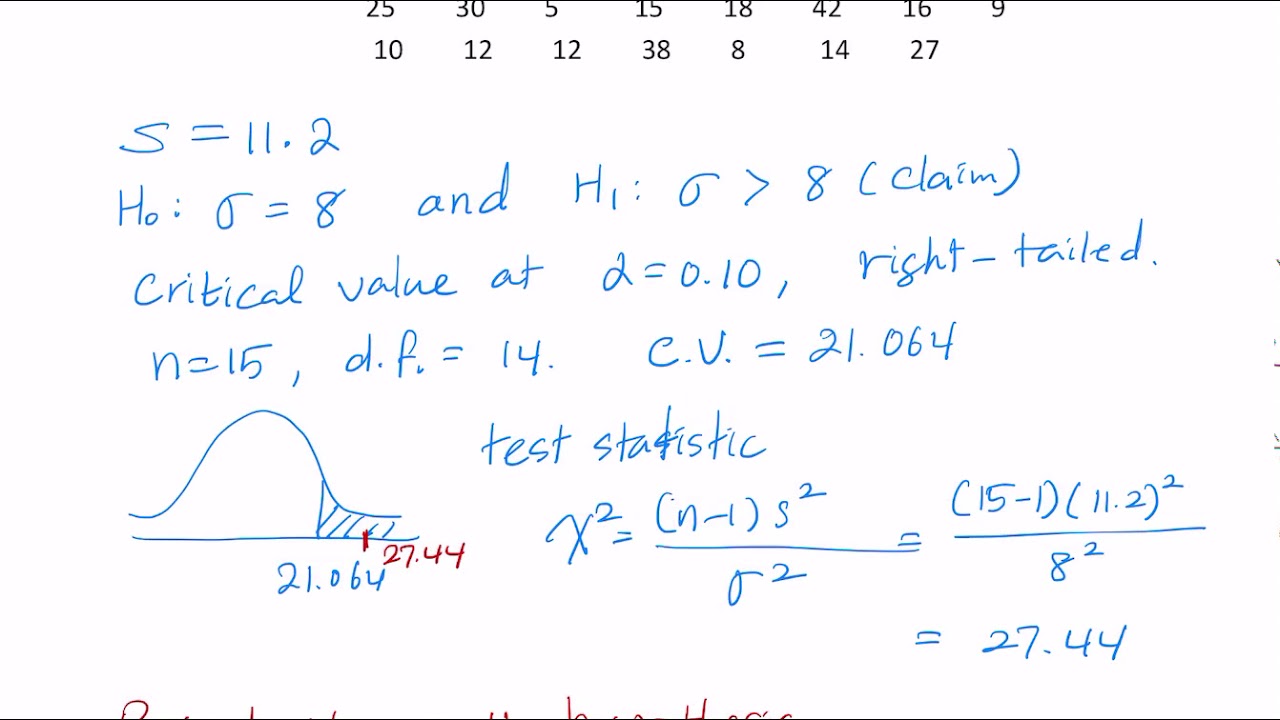 25 30 5 15 18 42 16 9
10 12 12 38 8 14 27
S = 11.2
H₀: σ = 8 and H₁: σ > 8 (claim)
Critical value at α = 0.10, right-tailed.
n=15, d.f. = 14. C.V. = 21.064
test statistic
χ² = (n-1)s² / σ² = (15-1)(11.2)² / 8²
27.44
21.064
= 27.44